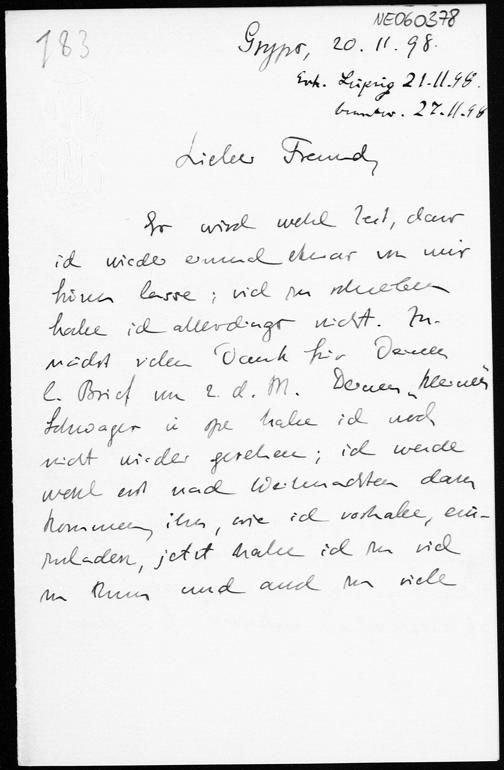 NE060378
183
Gryps, 20.11.98.
Erh. Leipzig 21.11.98.
beantw. 27.11.98
Lieber Freund,
Es wird wohl Zeit, dass
ich wieder einmal etwas von mir
hören lasse; viel zu schreiben
habe ich allerdings nicht. Zu-
nächst vielen Dank für Deinen
l. Brief vom 2. d. M. Deinen „kleinen
Schwager in spe habe ich noch
nicht wieder gesehen; ich werde
wohl erst nach Weihnachten dazu
kommen, ihn, wie ich vorhabe, ein-
zuladen, jetzt habe ich zu viel
zu thun und auch zu viele